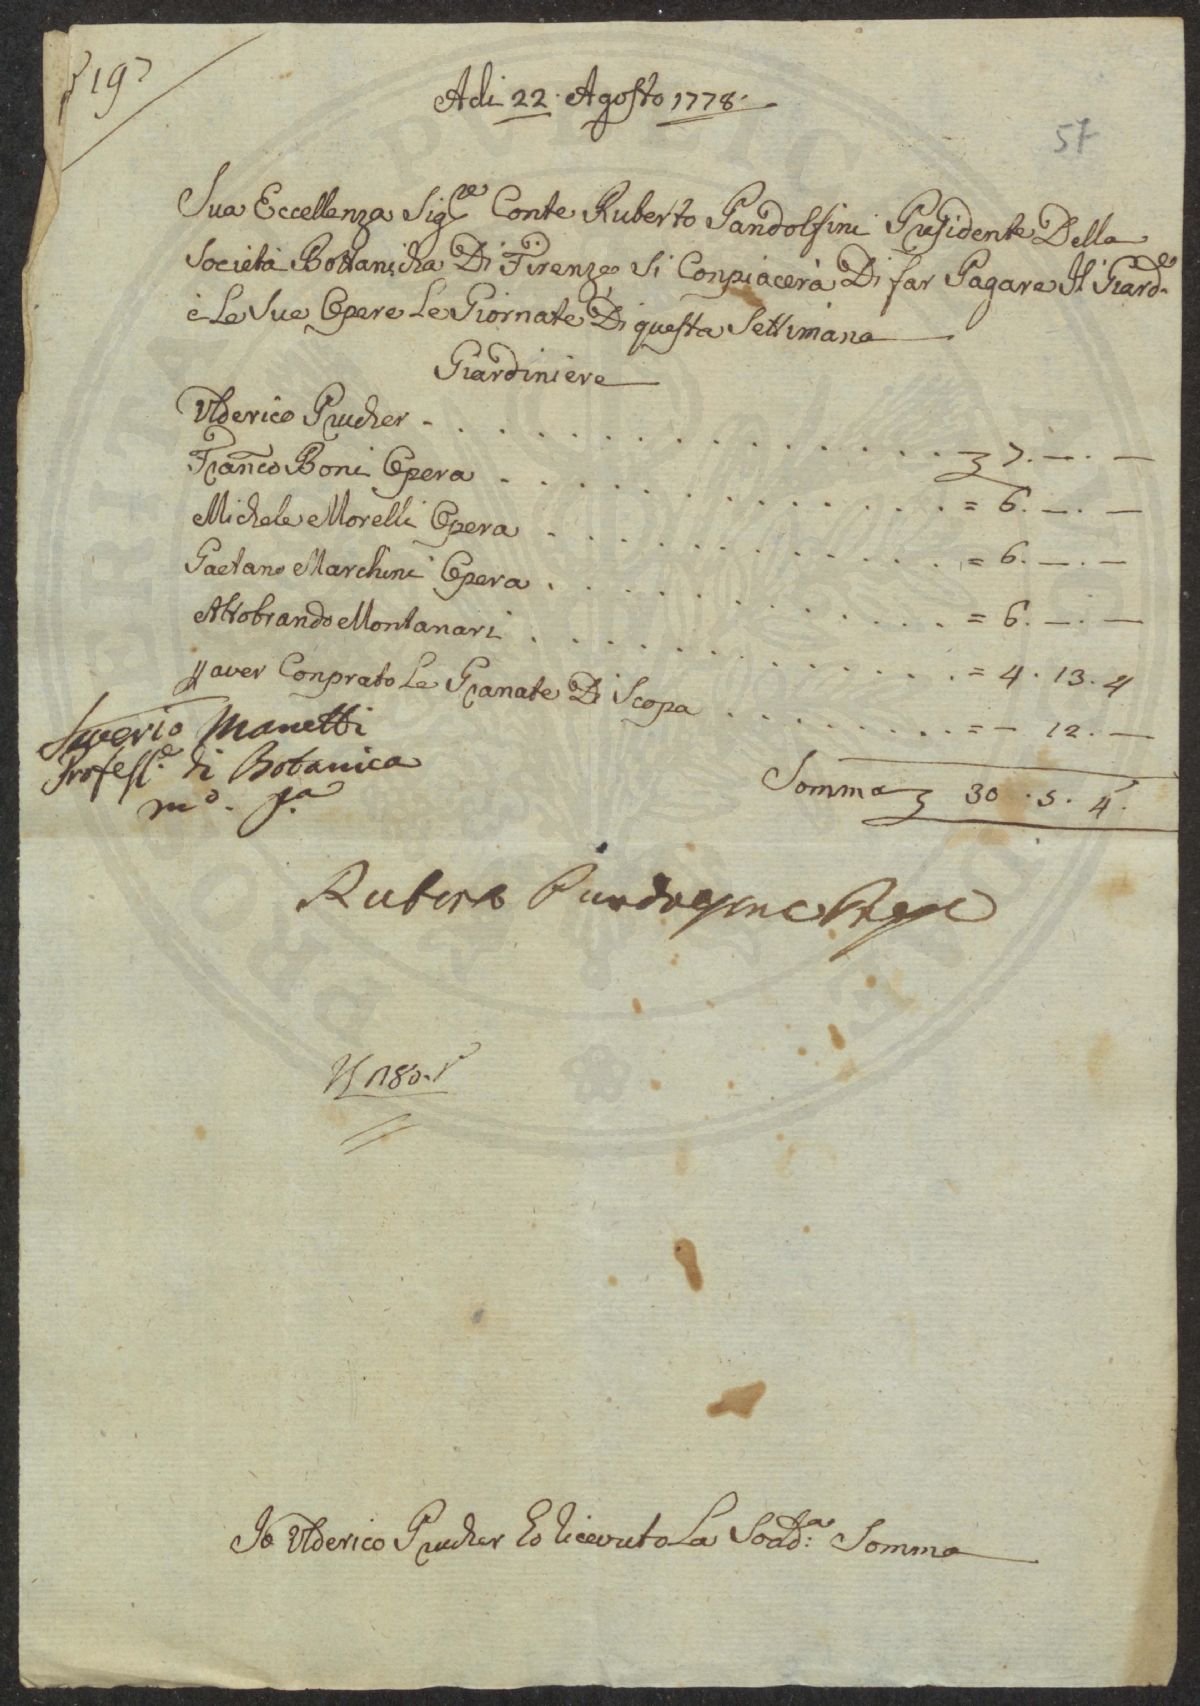 197
Adi 22. Agosto 1778.
57
Sua Eccellenza Sig.re Conte Ruberto Pandolfini Presidente Della
Società Bottanicha Di Firenze si Conpiacerà Di far Pagare Il Giard.e
è Le Sue Opere Le Giornate Di questa Settimana
Giardiniere
Ulderico Prucher - . . . . . . . . . . . . 7. —. —
Franco Boni Opera . . . . . . . . . . . . = 6. —. —
Michele Morelli Opera . . . . . . . . . . . = 6. —. —
Gaetano Marchini Opera . . . . . . . . . . . = 6. —. —
Aldobrando Montanari . . . . . . . . . . . . = 4. 13. 4
aver Conprato Le Granate Di Scopa . . . . . . . . = — 12. —
Saverio Manetti
Profess.e di Botanica
m.o p.a
Somma 30. 5. 4.
Ruberto Pandolfini
1780.
Io Ulderico Prucher Ho ricevuto La Sodd.a Somma